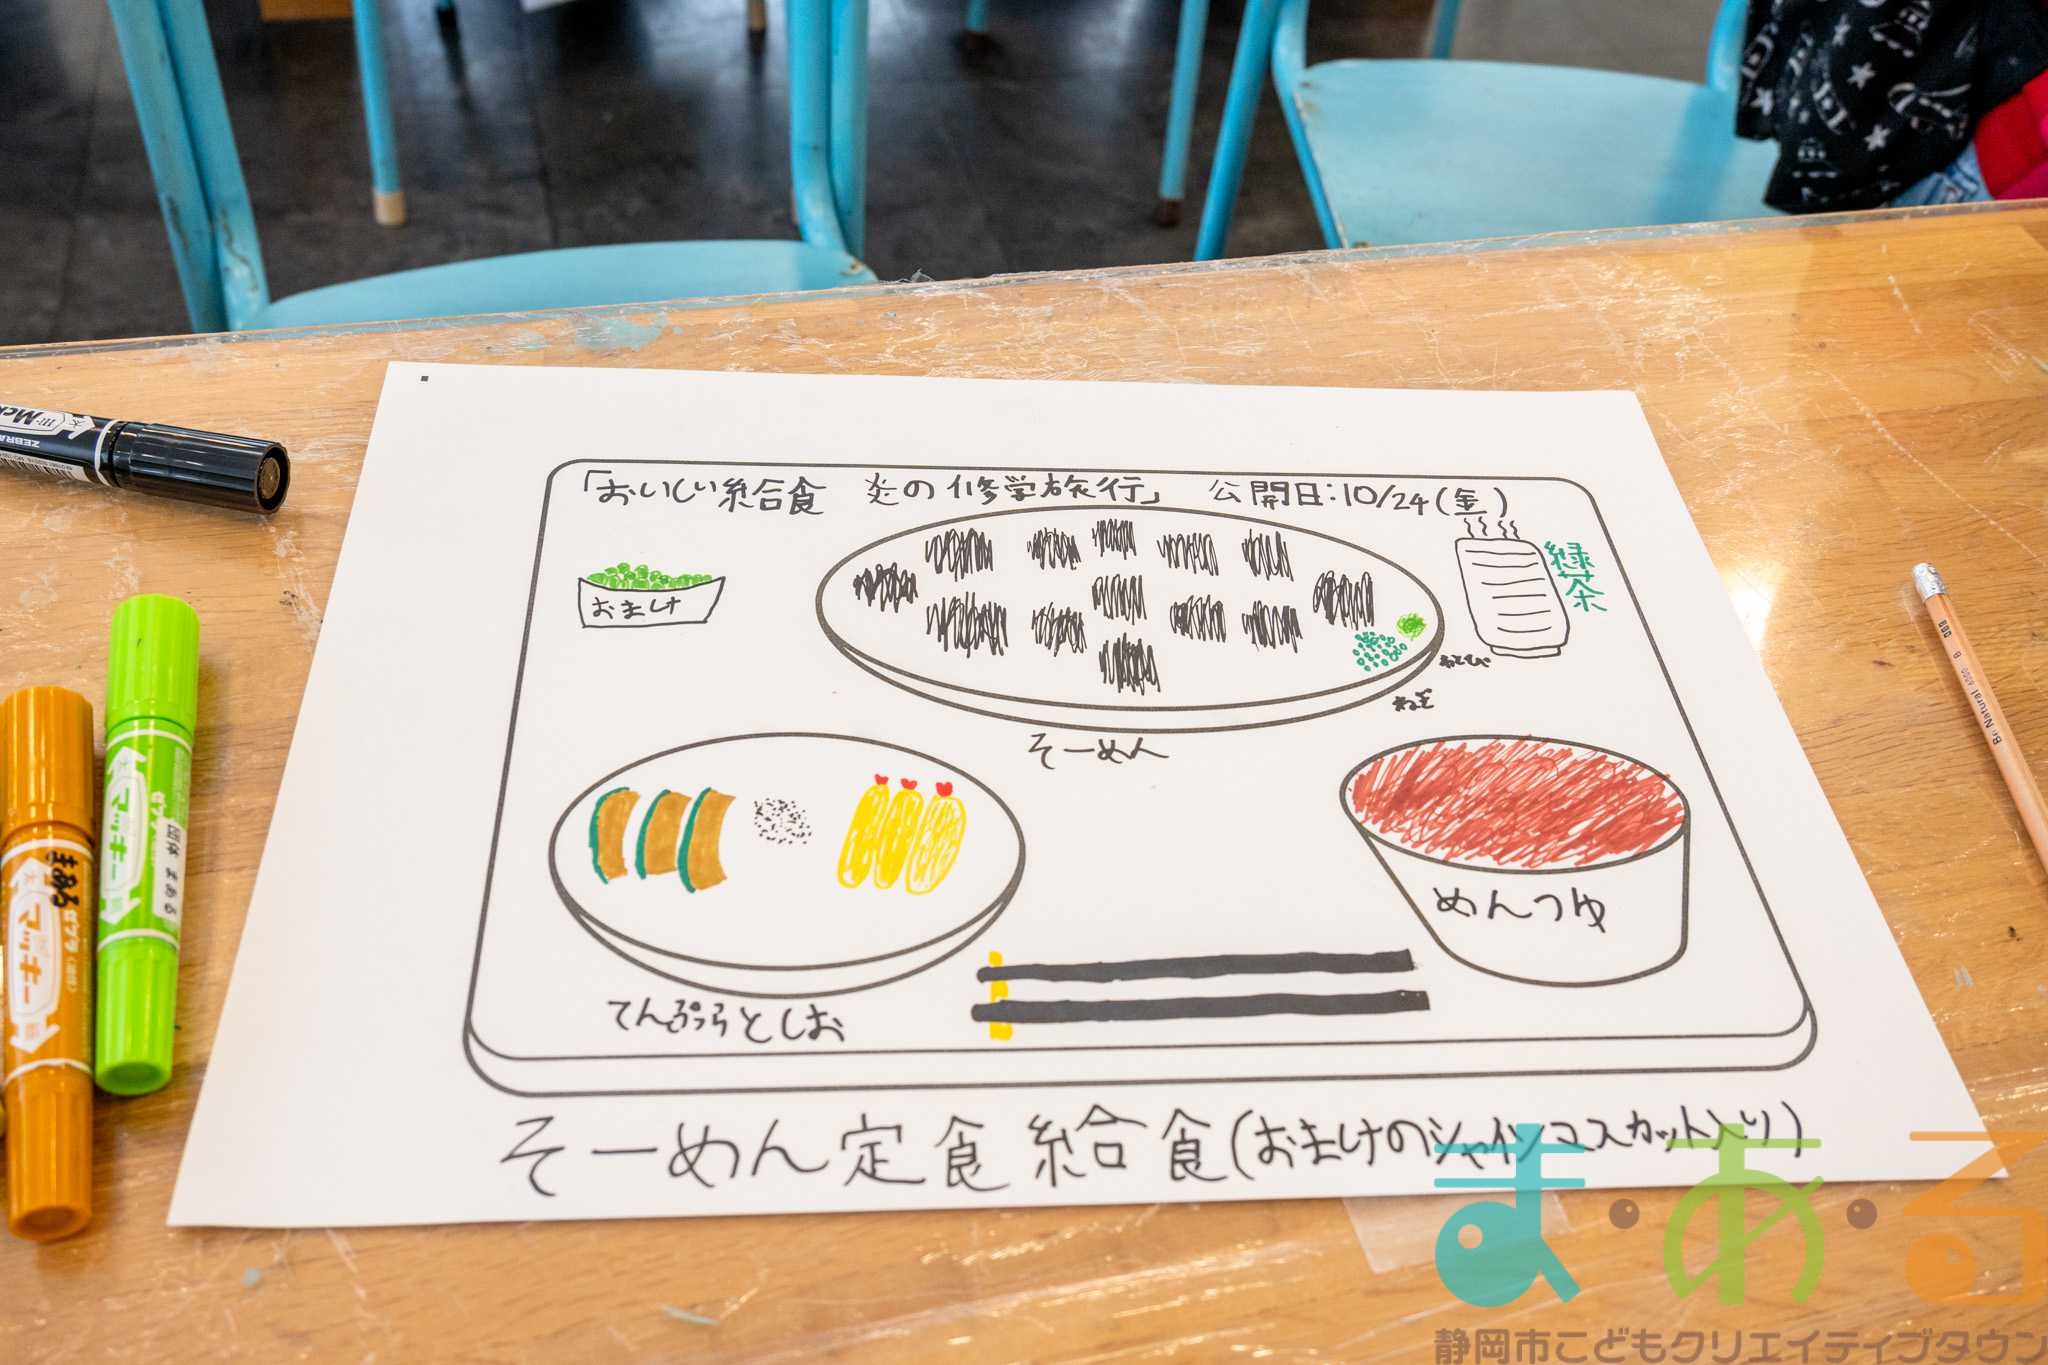 「おいしい給食 炎の修学旅行」 公開日:10/24(金)
おまけ
緑茶
わさび
ねぎ
そーめん
めんつゆ
てんぷらとしお
そーめん定食給食(おまけのシャインマスカット入り)
ZEBRA
マッキー
団体 まある
まある
マッキー
Be Natural
ま・あ・る
静岡市こどもクリエイティブタウン